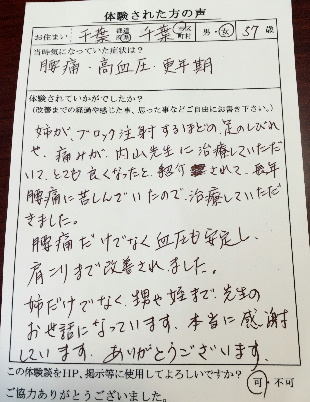 体験された方の声
お住まい 千葉 都道府県 千葉 市区町村 男・女 57歳
当時気になっていた症状は?
腰痛・高血圧・更年期
体験されていかがでしたか?
(改善までの経過や感じた事、思った事などご自由にお書き下さい。)
姉が、ブロック注射するほどの、足のしびれ
や、痛みが、内山先生に治療していただ
いて、とても良くなったと、紹介されて、長年
腰痛に苦しんでいたので、治療していただ
きました。
腰痛だけでなく血圧も安定し、
肩こりまで改善されました。
姉だけでなく、甥や姪まで、先生の
お世話になっています。本当に感謝
しています。ありがとうございます。
この体験談をHP、掲示等に使用してよろしいですか? 可・不可
ご協力ありがとうございました。